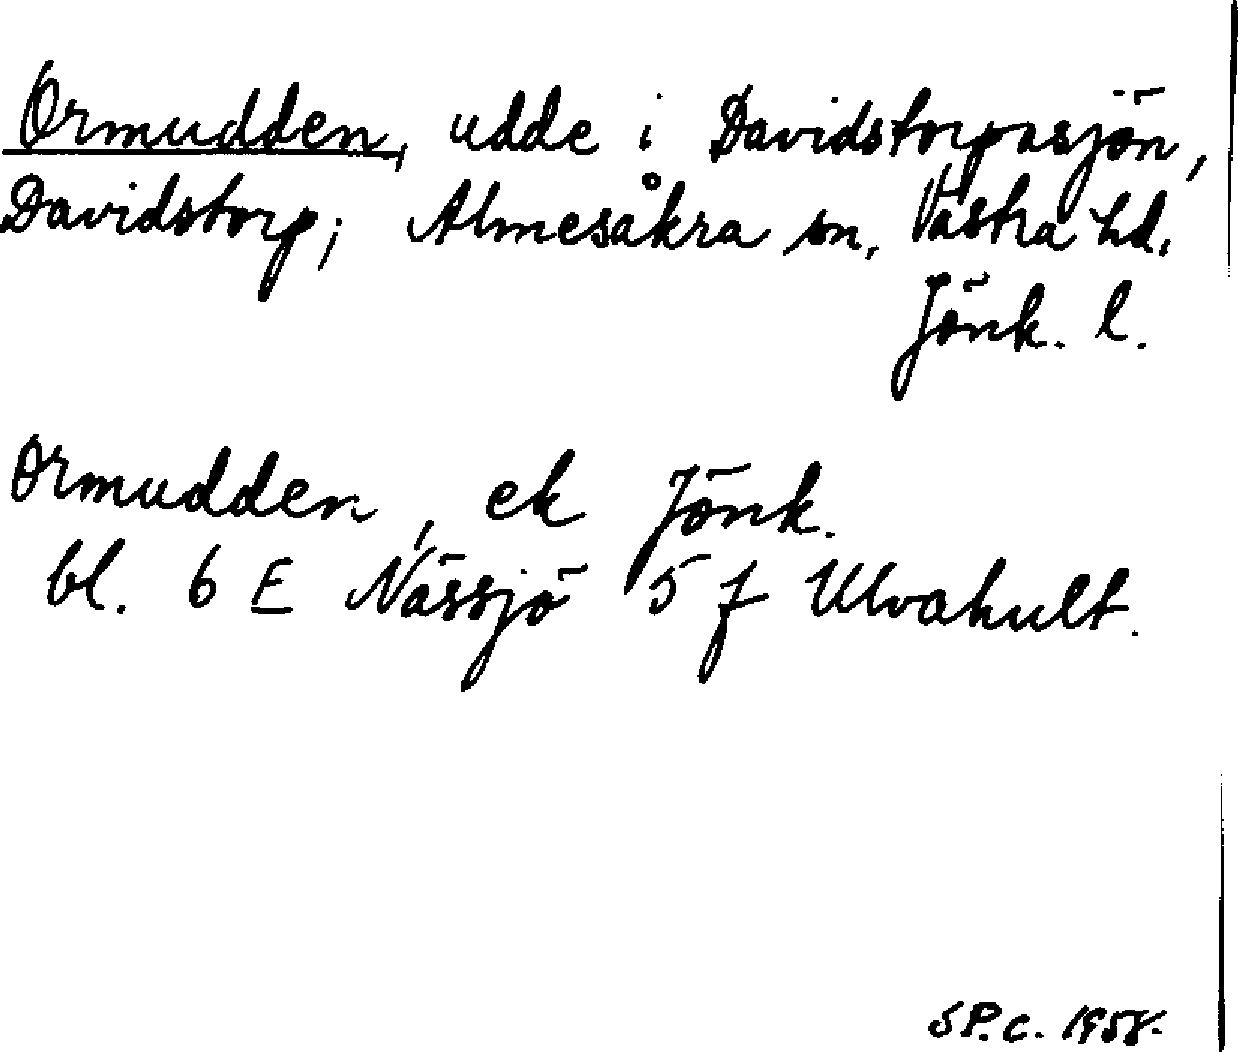 Ormudden, udde i Davidstorpasjön,
Davidstorp; Almesåkra sn, Västra hd.
Jönk. l.
Ormudden, ek Jönk.
bl. 6 E Nässjö 5 f Ulvahult.
SP.C. 1958.